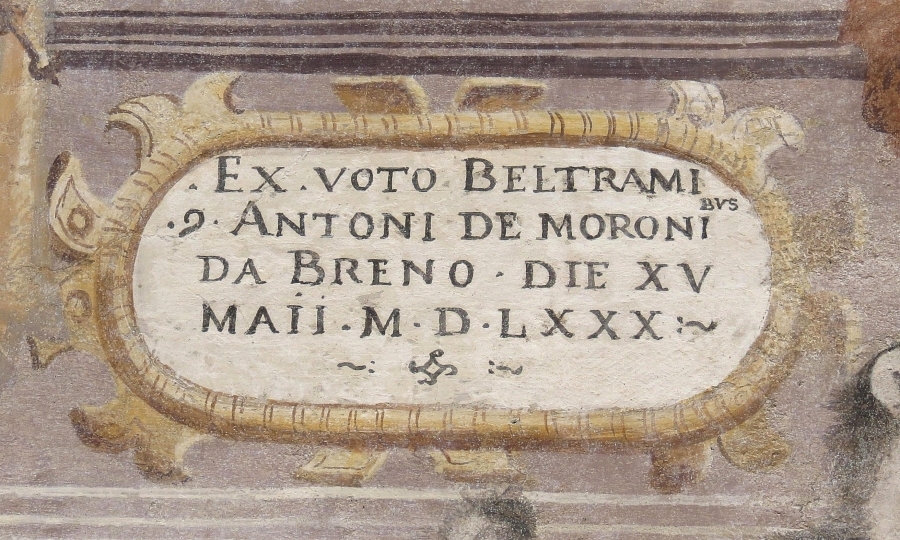 . EX . VOTO BELTRAMI
.9. ANTONI DE MORONIBUS
DA BRENO . DIE XV
MAII . M . D . LXXX :~